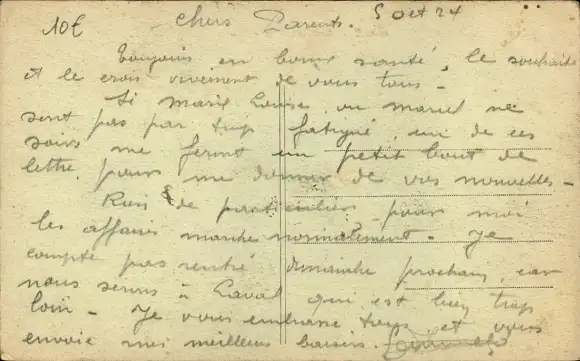 10€
Chers Parents. 5 Oct 24
Toujours en bonne santé, le souhaite
et le crois vivement de vous tous -
Si Marie Louise ou Marcel ne
sont pas par trop fatigué, un de ces
soirs me feront un petit bout de
lettre pour me donner de vos nouvelles -
Rien de particulier pour moi
les affaires marche normalement - Je
compte pas rentré dimanche prochain, car
nous serons à Laval qui est bien trop
loin - Je vous embrasse tous et vous
envoie mes meilleurs baisers.